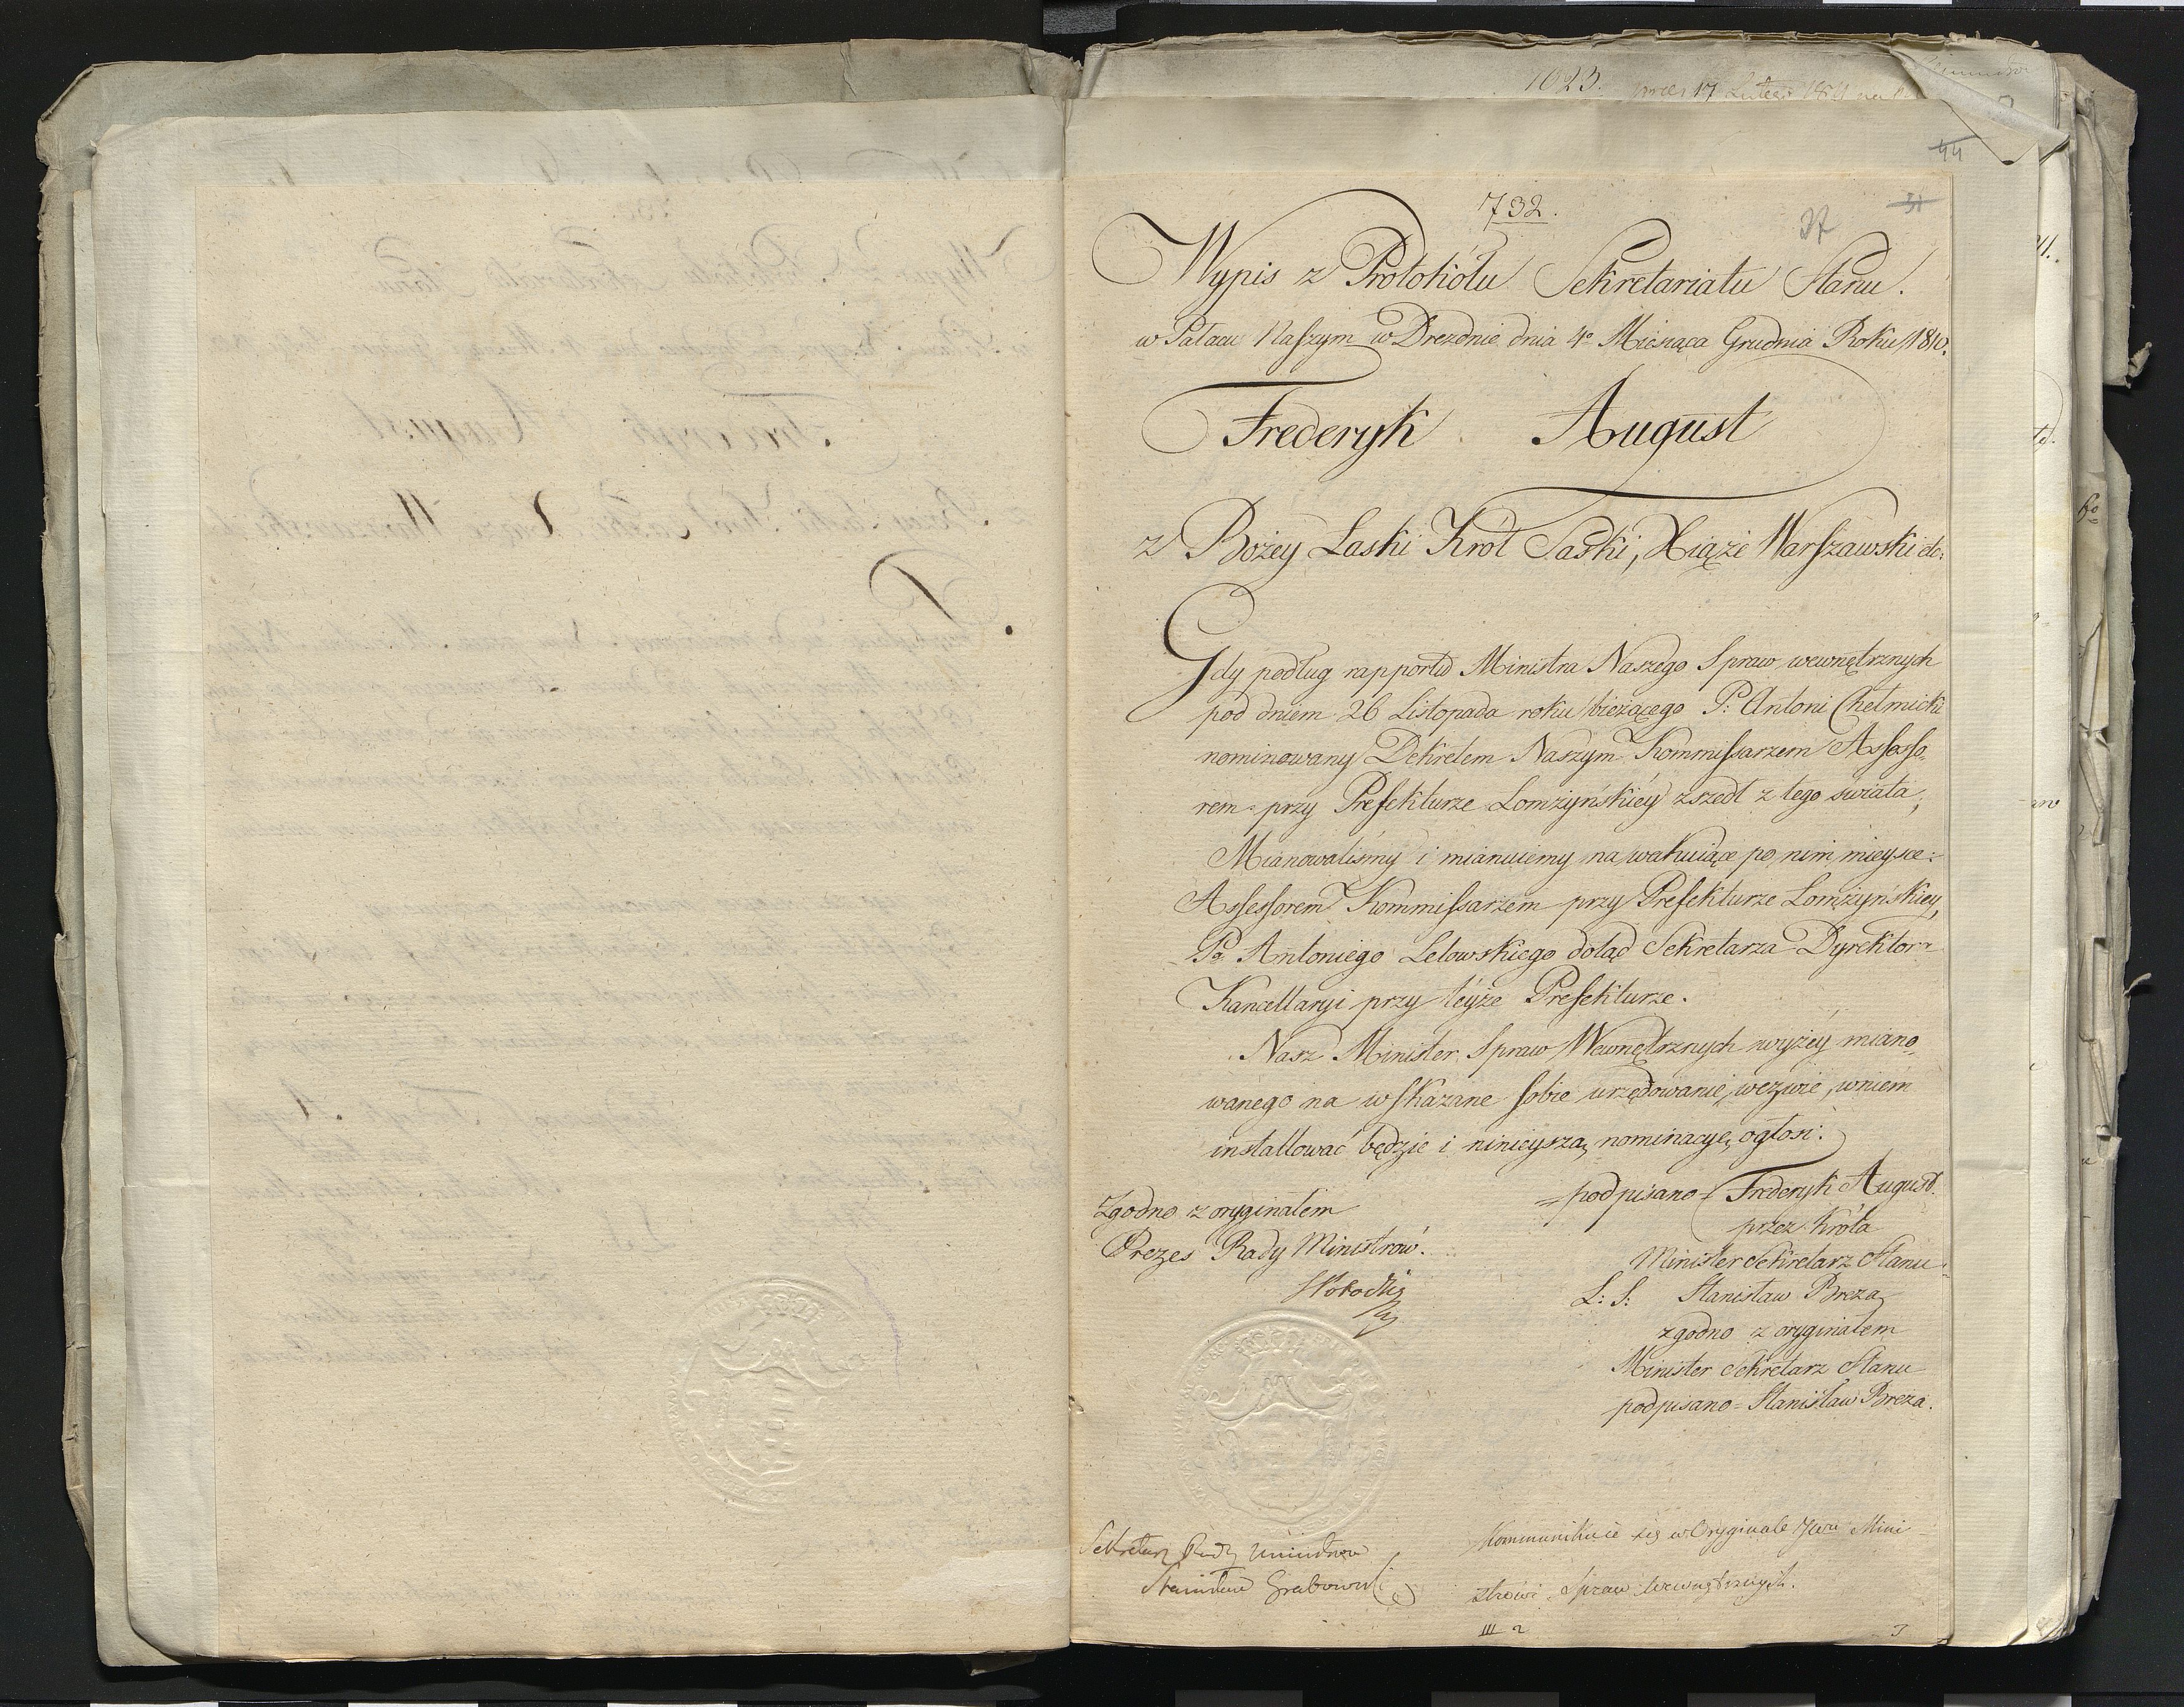 1023. 17 Lutego
44
732.
37
31
Wypis z Protokółu Sekretariatu Stanu.
w Pałacu Naszym w Dreźnie dnia 4º Miesiąca Grudnia Roku 1810.
Frederyk August
z Bożey Łaski Król Saski, Xiąże Warszawski etc:
Gdy podług rapportu Ministra Naszego Spraw wewnętrznych
pod dniem 26 Listopada roku bieżącego P: Antoni Chełmicki
nominowany Dekretem Naszym Kommissarzem Assesso=
rem przy Prefekturze Łomżyńskiéy zszedł z tego świata,
Mianowaliśmy i mianuiemy na wakuiące po nim mieysce:
Assessorem Kommissarzem przy Prefekturze Łomżyńskiey,
Pª Antoniego Letowskiego dotąd Sekretarza Dyrektora
Kancellaryi przy téyże Prefekturze.
Nasz Minister Spraw Wewnętrznych wyżey miano=
wanego na wskazane sobie urzędowanie wezwie, wniem
installować będzie i ninieyszą nominacyę ogłosi.
Zgodno z oryginałem
Prezes Rady Ministrów.
=podpisano= Frederyk August.
przez Króla
Minister Sekretarz Stanu
L: S: Stanisław Breza
zgodno z oryginałem
Minister Sekretarz Stanu
podpisano= Stanisław Breza.
Sekretarz Rady Ministrów
Stanisław Grabowski
Kommunikuie się w Oryginale JWu Mini-
strowi Spraw Wewnętrznych.
III 2